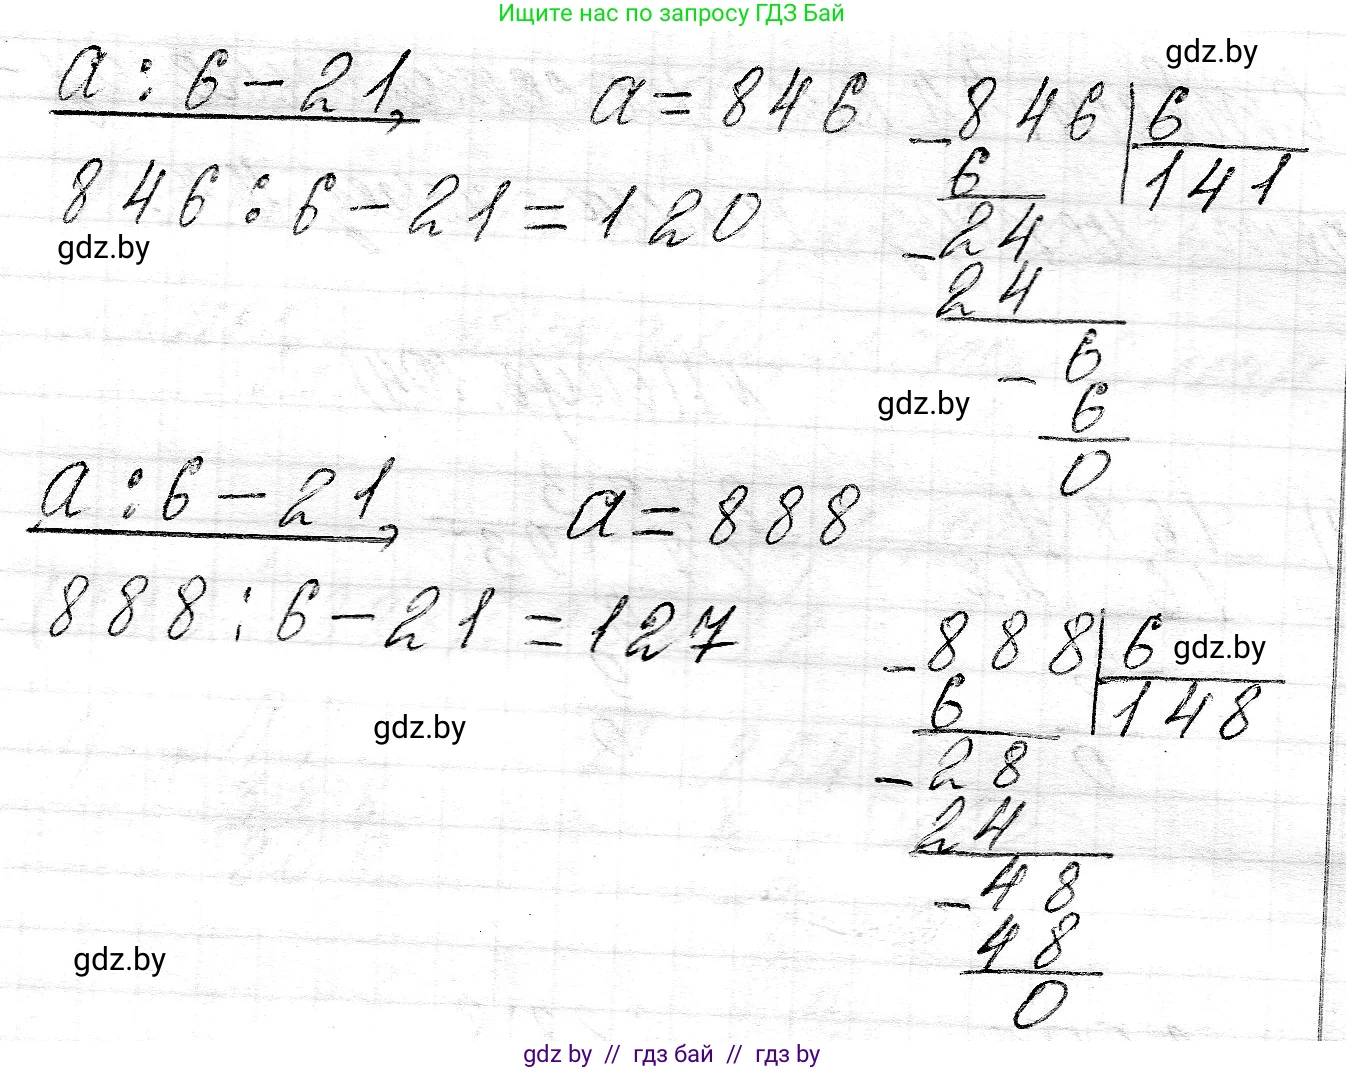 Ищите нас по запросу ГДЗ Бай
gdz.by
a : 6 - 21, a = 846
846 : 6 - 21 = 120
gdz.by
- 846 | 6
6 141
- 24
24
- 6
6
0
gdz.by
a : 6 - 21, a = 888
888 : 6 - 21 = 127
- 888 | 6
gdz.by
6 148
- 28
24
- 48
48
0
gdz.by
gdz.by
gdz by // гдз бай // гдз by